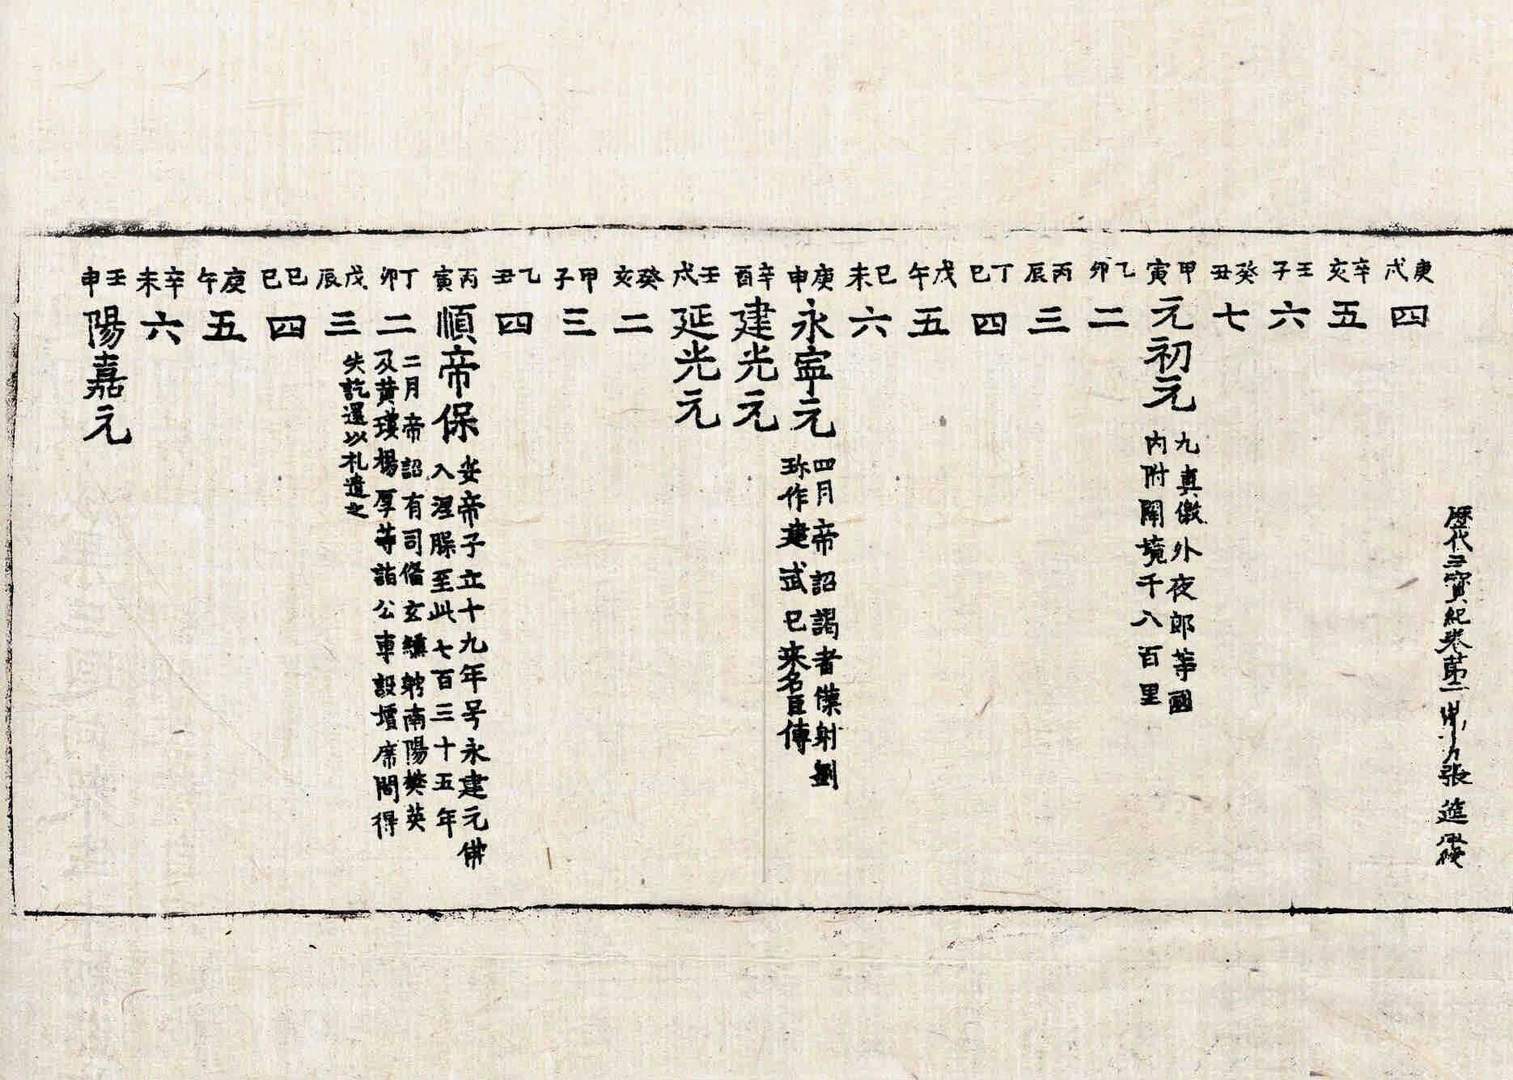 歷代三寶紀卷第二 張進
庚戌 四
辛亥 五
壬子 六
癸丑 七
甲寅 元初元 九真儌外夜郎等國
內附闢境千八百里
乙卯 二
丙辰 三
丁巳 四
戊午 五
己未 六
庚申 永寧元 四月帝詔謁者僕射劉
珎作建武已来名臣傳
辛酉 建光元
壬戌 延光元
癸亥 二
甲子 三
乙丑 四
丙寅 順帝保 安帝子立十九年号永建元佛
入涅腺至此七百三十五年
丁卯 二 二月帝詔有司俻玄纁聘南陽樊英
及黄瓊楊厚等詣公車設壇席問得
失訖還以礼遣之
戊辰 三
己巳 四
庚午 五
辛未 六
壬申 陽嘉元